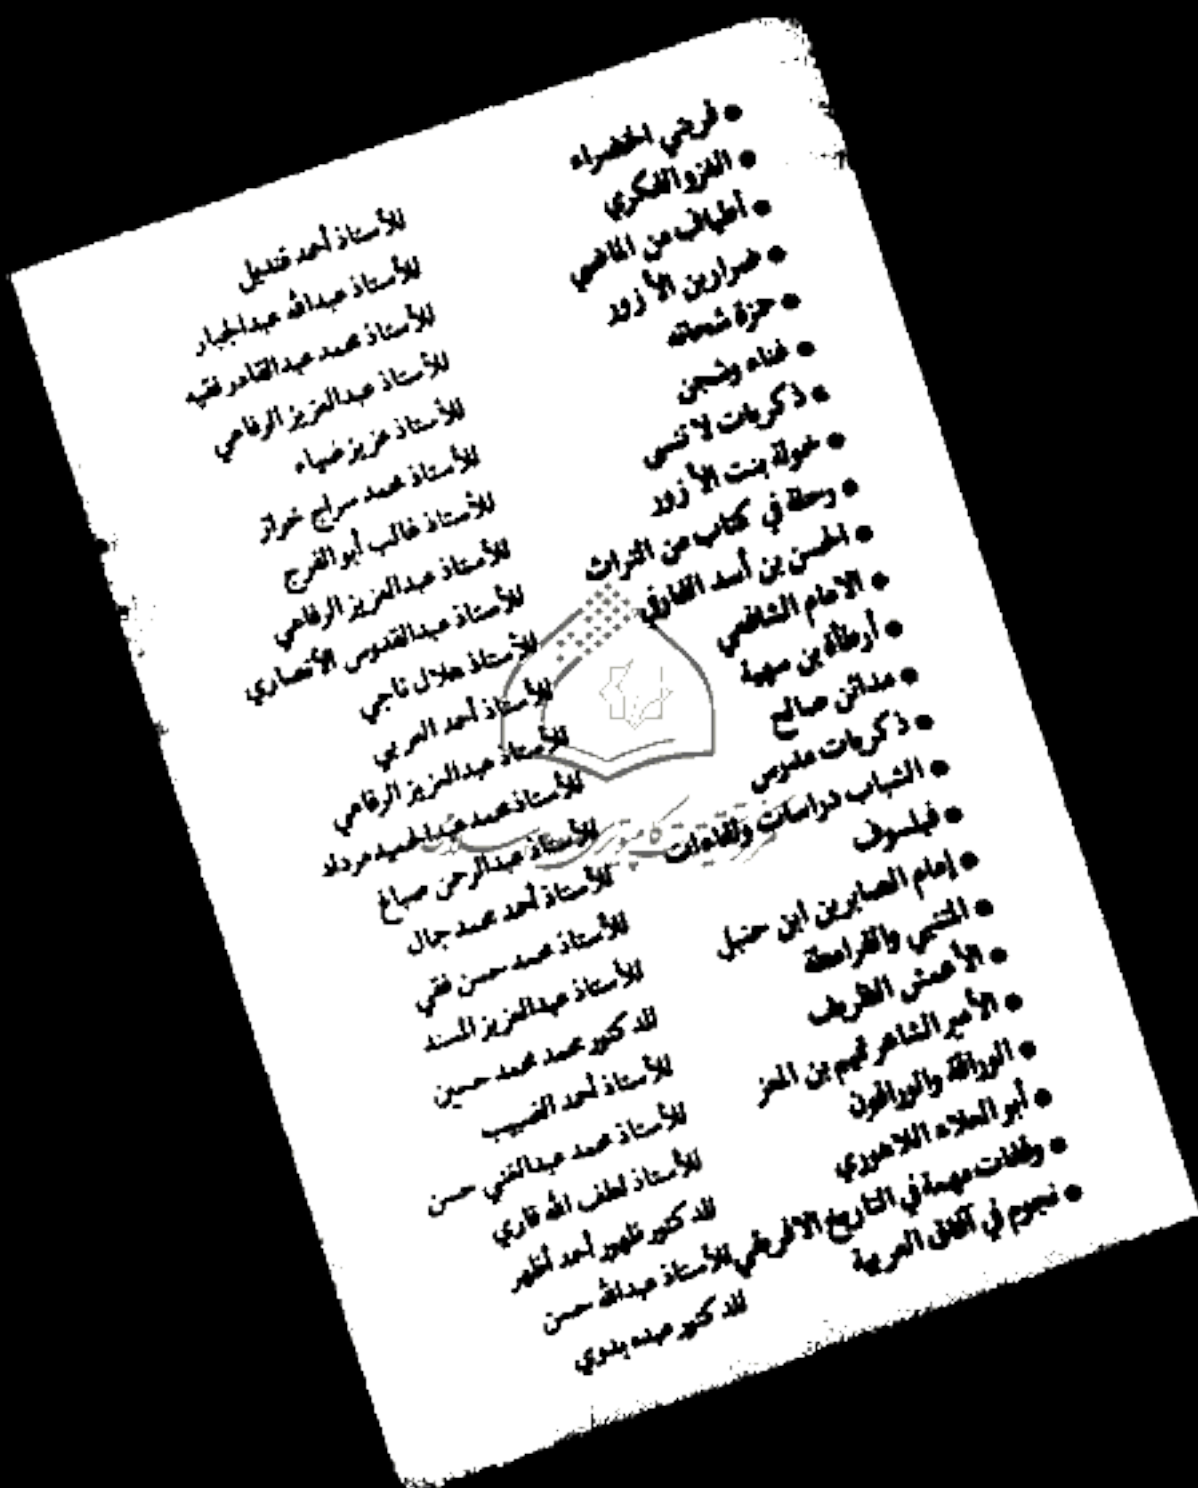 • قريتي الخضراء للأستاذ أحمد قنديل
• الغزو الفكري للأستاذ عبدالله عبدالجبار
• أطياف من الماضي للأستاذ محمد عبدالقادر فقيه
• ضرار بن الأزور للأستاذ عبدالعزيز الرفاعي
• حمزة شحاته للأستاذ عزيز ضياء
• غناء وشجن للأستاذ محمد سراج خراز
• ذكريات لا تنسى للأستاذ غالب أبو الفرج
• خولة بنت الأزور للأستاذ عبدالعزيز الرفاعي
• رحلة في كتاب من التراث للأستاذ عبدالقدوس الأنصاري
• الحسن بن أسد الفارقي للأستاذ هلال ناجي
• الامام الشافعي للأستاذ أحمد العربي
• أرطأة بن سهية للأستاذ عبدالعزيز الرفاعي
• مدائن صالح للأستاذ محمد عبدالحميد مرداد
• ذكريات مدرس للأستاذ عبدالرحمن صباغ
• الشباب دراسات ولقاءات للأستاذ أحمد محمد جمال
• فيلسوف للأستاذ محمد حسن فقي
• إمام الصابرين ابن حنبل للأستاذ عبدالعزيز المسند
• المتنبي والقرامطة للدكتور محمد محمد حسين
• الأعمش الظريف للأستاذ أحمد الضبيب
• الأمير الشاعر تميم بن المعز للأستاذ محمد عبدالغني حسن
• الوراقة والوراقون للأستاذ لطف الله قاري
• أبو العلاء اللاهوري للدكتور ظهور أحمد أظهر
• وقفات مهمة في التاريخ الافريقي للأستاذ عبدالله حسن
• نجوم في آفاق العربية للدكتور عبده بدوي